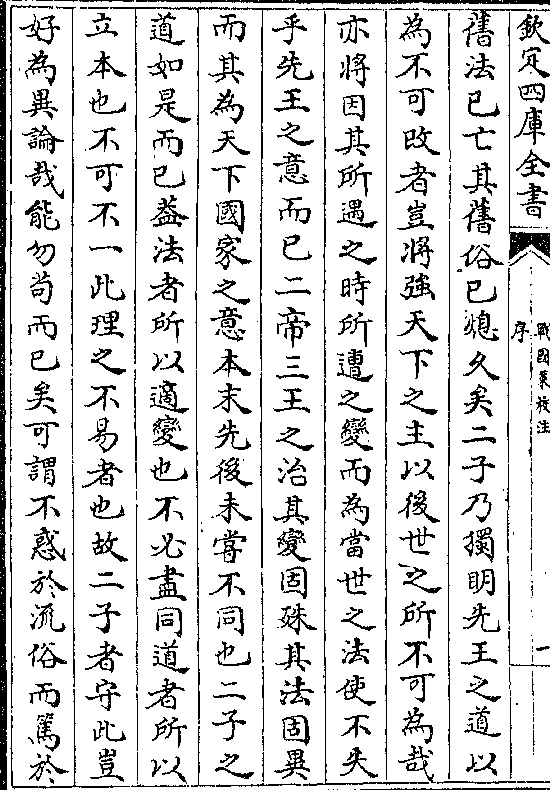 欽定四庫全書
戰國策校注
序
一
舊法已亡其舊俗已熄久矣二子乃獨明先王之道以
為不可改者豈將強天下之主以後世之所不可為哉
亦將因其所遇之時所遭之變而為當世之法使不失
乎先王之意而已二帝三王之治其變固殊其法固異
而其為天下國家之意本末先後未嘗不同也二子之
道如是而已葢法者所以適變也不必盡同道者所以
立本也不可不一此理之不易者也故二子者守此豈
好為異論哉能勿茍而已矣可謂不惑於流俗而篤於